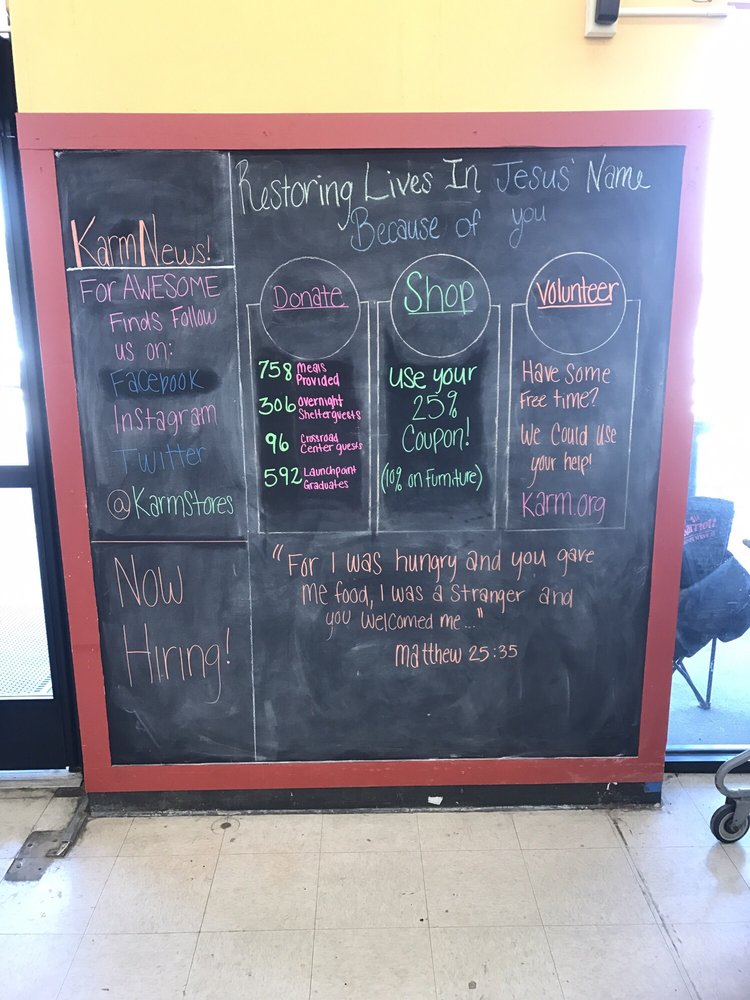 Restoring Lives In Jesus' Name
Because of you
KarmNews!
For AWESOME
Finds Follow
us on:
Facebook
Instagram
Twitter
@KarmStores
Now
Hiring!
Donate
758 Meals
Provided
306 Overnight
Shelterguests
96 Crossroad
Center guests
592 Launchpoint
Graduates
Shop
use your
25%
Coupon!
(10% on Furniture)
Volunteer
Have some
Free time?
We Could Use
your help!
Karm.org
"For I was hungry and you gave
me food, I was a stranger and
you welcomed me..."
Matthew 25:35